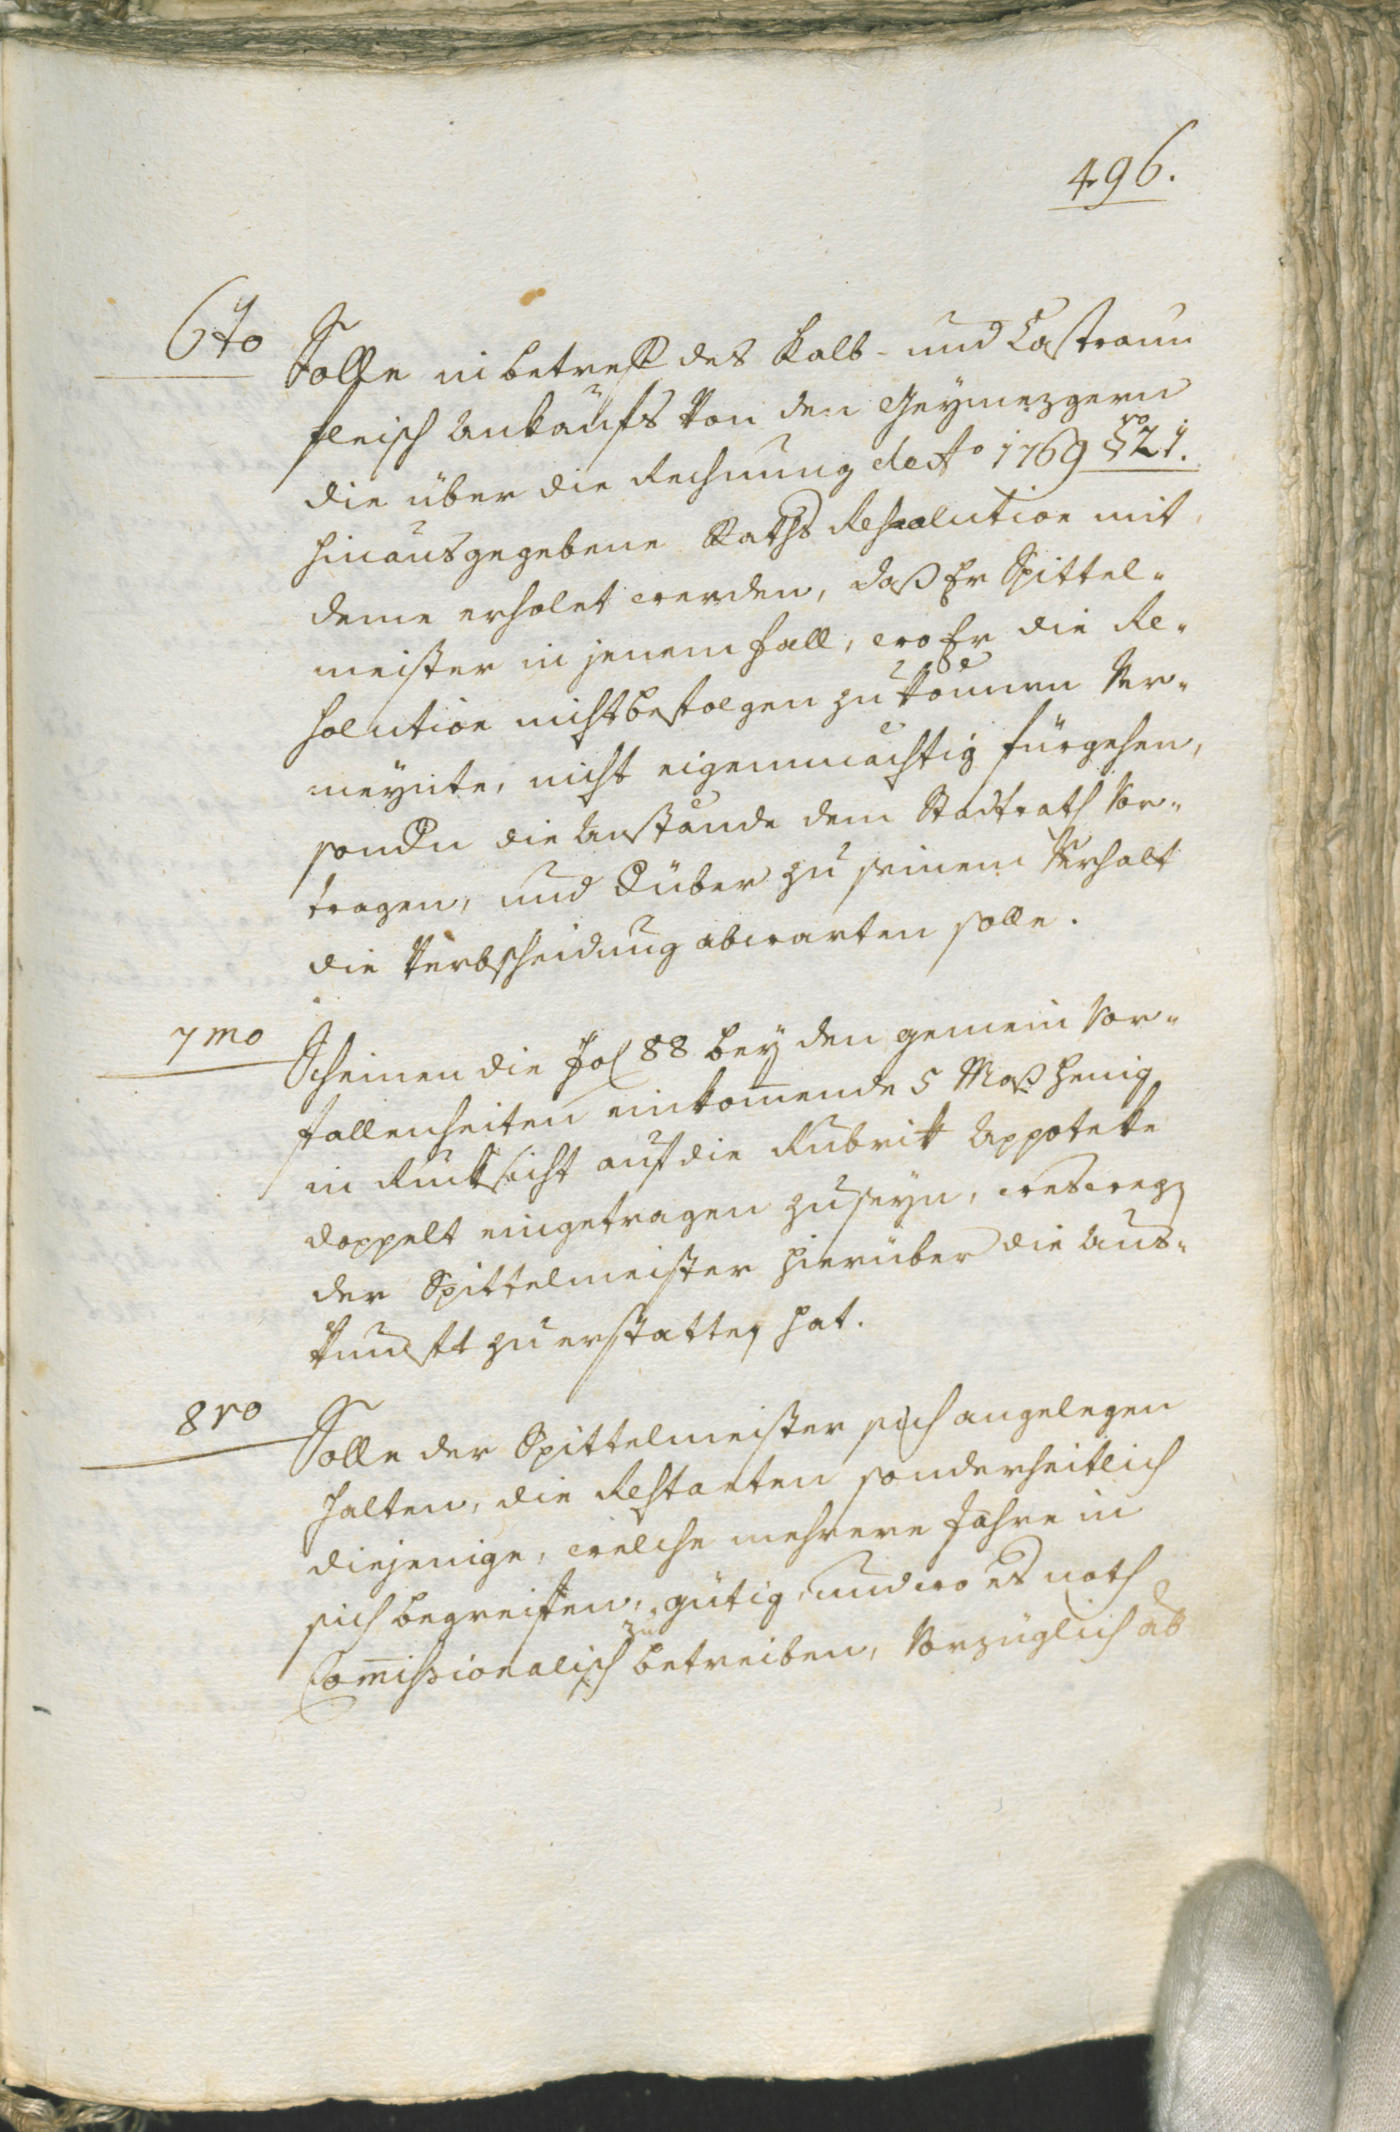 496.
6to Solle in betreff des Kalb- und Castraun
fleisch Ankaufs von den Geymezgern
die über die Rechnung de Ao 1769 §ro 21.
hinausgegebene Raths Resolution mit
deme erholet werden, daß Er Spittel-
meister in jenem fall, wo Er die Re-
solution nicht befolgen zu können ver-
meynte, nicht eigenmächtig fürgehen,
sondern die Anstände dem Stadtrath vor-
tragen, und darüber zu seinem Verhalt
die Verbscheidung abwarten solle.
7mo Scheinen die fol 88 bey den gemein Vor-
fallenheiten einkom̄ende 5 Maß Henig
in Rücksicht auf die Rubrik Appoteke
doppelt eingetragen zu seyn, weswegen
der Spittelmeister hierüber die Aus-
kunft zu erstatten hat.
8vo Solle der Spittelmeister sich angelegen
halten, die Restanten sonderheitlich
diejenige, welche mehrere Jahre in
sich begreiffen, gütig, und wo es noth
Com̄issionalisch zu betreiben, vorzüglich ab